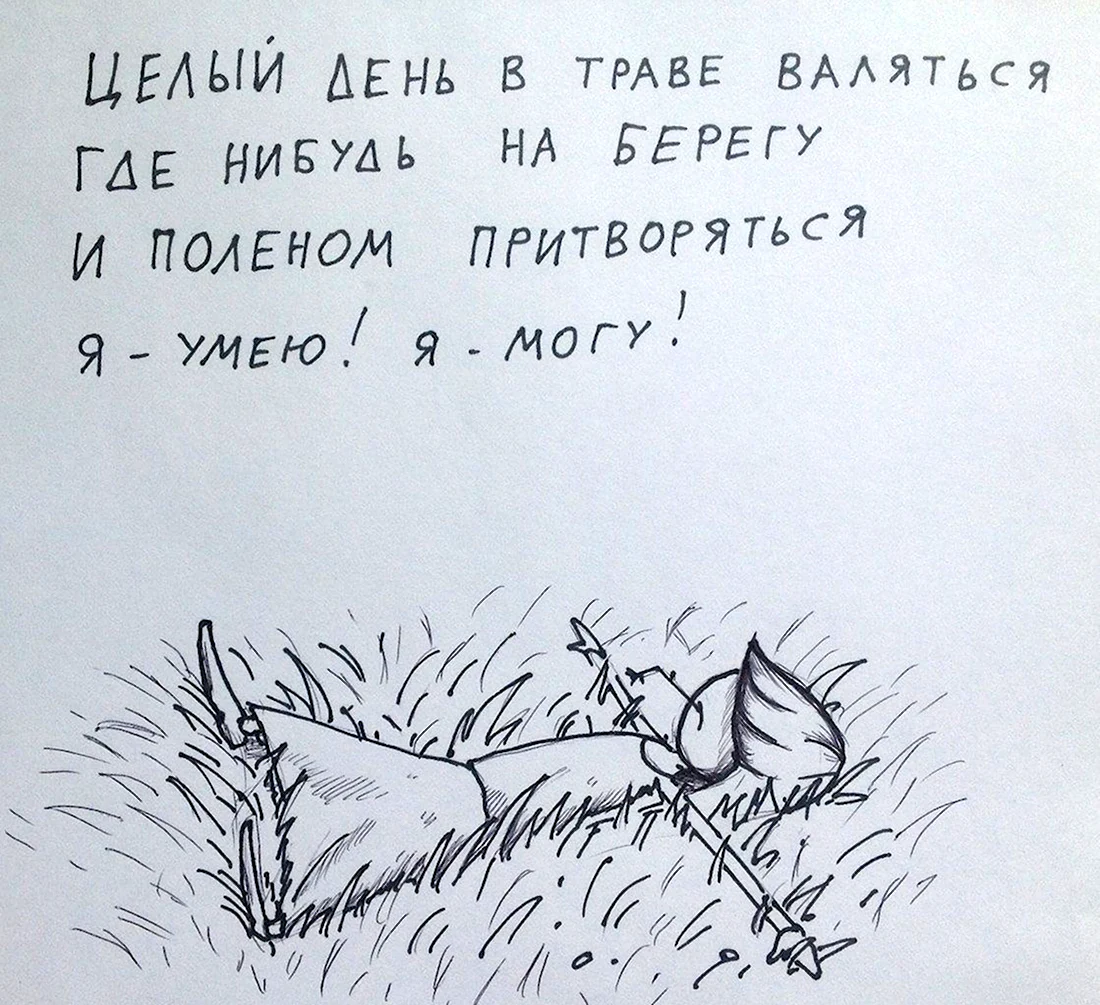 ЦЕЛЫЙ ДЕНЬ В ТРАВЕ ВАЛЯТЬСЯ
ГДЕ НИБУДЬ НА БЕРЕГУ
И ПОЛЕНОМ ПРИТВОРЯТЬСЯ
Я - УМЕЮ! Я - МОГУ!